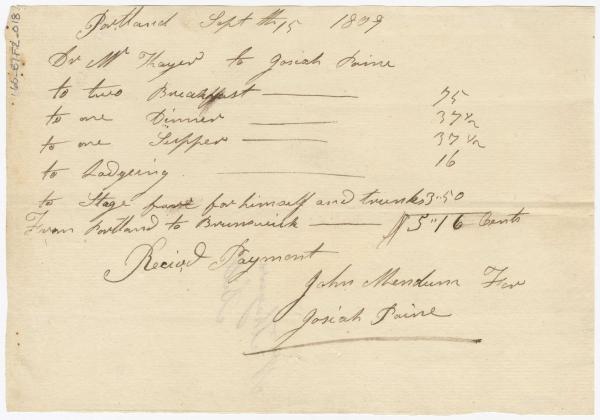 Portland Sept th 15 1809
Dr Mr Thayer to Josiah Paine
to two Breakfast —— 75
to one Dinner —— 37 1/2
to one Supper —— 37 1/2
to Lodging —— 16
to Stage fare for himself and trunks 3.50
From Portland to Brunswick —— $5"16 Cents
Recievd Payment
John Mendum For
Josiah Paine